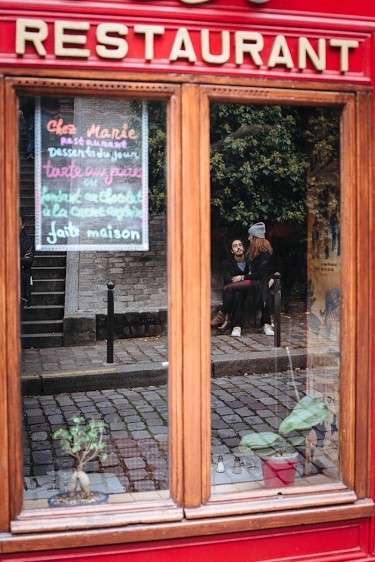 RESTAURANT
Chez Marie
restaurant
Desserts du jour
tarte aux poires
fondant au chocolat
à la creme anglaise
faits maison